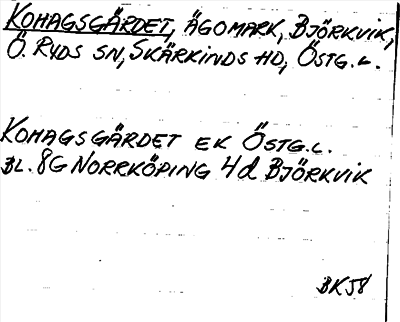 KOHAGSGÄRDET, ÄGOMARK, BJÖRKVIK,
Ö. RYDS SN, SKÄRKINDS HD, ÖSTG.L.
KOHAGSGÄRDET EK ÖSTG.L.
BL. 8G NORRKÖPING 4d BJÖRKVIK
BK58